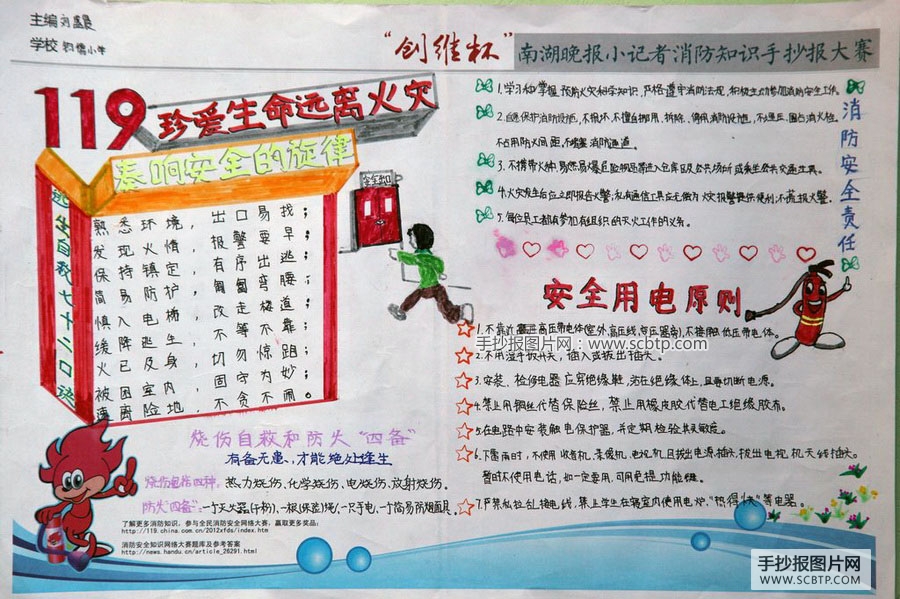 主编 刘
学校 小学
"创维杯"南湖晚报小记者消防知识手抄报大赛
119珍爱生命远离火灾
奏响安全的旋律
逃生自救七十二口诀
熟悉环境，出口易找；
发现火情，报警要早；
保持镇定，有序出逃；
简易防护，匍匐弯腰；
慎入电梯，改走楼道；
缓降逃生，不等不靠；
火已及身，切勿惊跑；
被困室内，固守为妙；
远离险地，不贪不闹。
安全出口
烧伤自救和防火"四备"
有备无患，才能绝处逢生
烧伤包括四种：热力烧伤、化学烧伤、电烧伤、放射烧伤。
防火"四备"：一个灭火器(干粉)、一根(保险)绳、一只手电、一个简易防烟面具
了解更多消防知识，参与全民消防安全网络大赛，赢取更多奖品：
http://119.china.com.cn/2012xfds/index.htm
消防安全知识网络大赛题库及参考答案
http://news.handu.cn/article_26291.html
消防安全责任
1.学习和掌握预防火灾科学知识，严格遵守消防法规，积极主动参加消防安全工作。
2.自觉保护消防设施，不损坏、不擅自挪用、拆除、停用消防设施，不埋压、圈占消火栓，
不占用防火间距，不堵塞消防通道。
3.不携带火种、易燃易爆危险物品进入仓库以及公共场所或乘坐公共交通工具。
4.火灾发生后应立即报告火警；私有通信工具应无偿为火灾报警提供便利；不谎报火警。
5.每位员工都有参加有组织的灭火工作的义务。
安全用电原则
1.不靠近高压带电体(室外,高压线,变压器旁),不接触低压带电体。
手抄报图片网：www.scbtp.com
2.不用湿手扳开关，插入或拔出插头。
3.安装、检修电器应穿绝缘鞋，站在绝缘体上，且要切断电源。
4.禁止用铜丝代替保险丝，禁止用橡皮胶代替电工绝缘胶布。
5.在电路中安装触电保护器，并定期检验其灵敏度。
6.下雷雨时，不使用收音机、录像机、电视机且拔出电源插头，拔出电视机天线插头。
暂时不使用电话，如一定要用，可用免提功能键。
7.严禁私拉乱接电线，禁止学生在寝室内使用电炉、"热得快"等电器。
手抄报图片网
WWW.SCBTP.COM